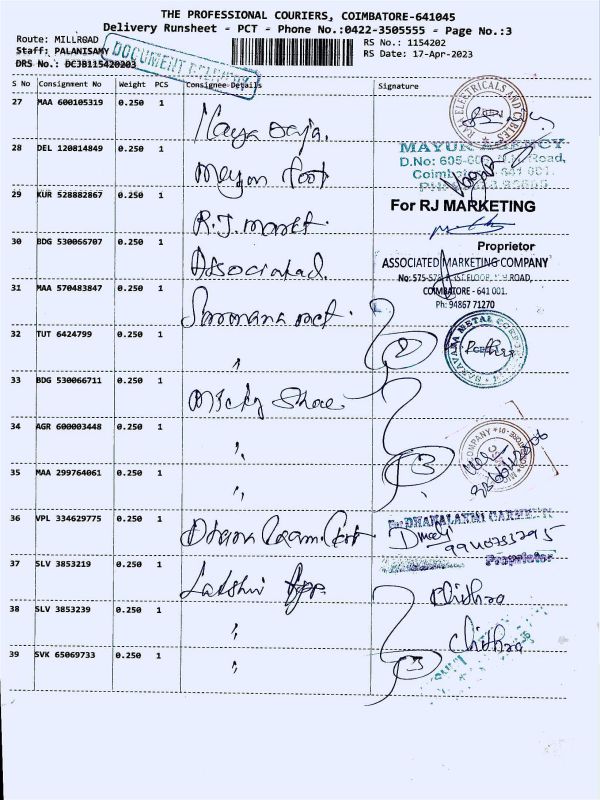 THE PROFESSIONAL COURIERS, COIMBATORE-641045
Delivery Runsheet - PCT - Phone No.:0422-3505555 - Page No.:3
Route: MILLROAD
RS No.: 1154202
Staff: PALANISAMY
RS Date: 17-Apr-2023
DRS No.: DCJB115420203
DOCUMENT
S No Consignment No Weight PCS Consignee Details Signature
27 MAA 600105319 0.250 1
RAJ ELECTRICALS AND CABLES
28 DEL 120814849 0.250 1 Mayur
MAYUR AGENCY
D.No: 605-60 Road,
Coimb 641 001.
29 KUR 528882867 0.250 1 R.J. Market
For RJ MARKETING
Proprietor
30 BDG 530066707 0.250 1 Associated
ASSOCIATED MARKETING COMPANY
No: 575-578, ROAD,
COIMBATORE - 641 001.
Ph: 94867 71270
31 MAA 570483847 0.250 1
32 TUT 6424799 0.250 1 "
2
SARAVANA METAL CORPORATION
33 BDG 530066711 0.250 1 Micky Shoe
34 AGR 600003448 0.250 1 "
3
35 MAA 299764061 0.250 1 "
36 VPL 334629775 0.250 1 Dhana
DHANALAXMI
Proprietor
37 SLV 3853219 0.250 1 Lakshmi
Chithra
38 SLV 3853239 0.250 1 "
Chithra
39 SVK 65069733 0.250 1 "
3